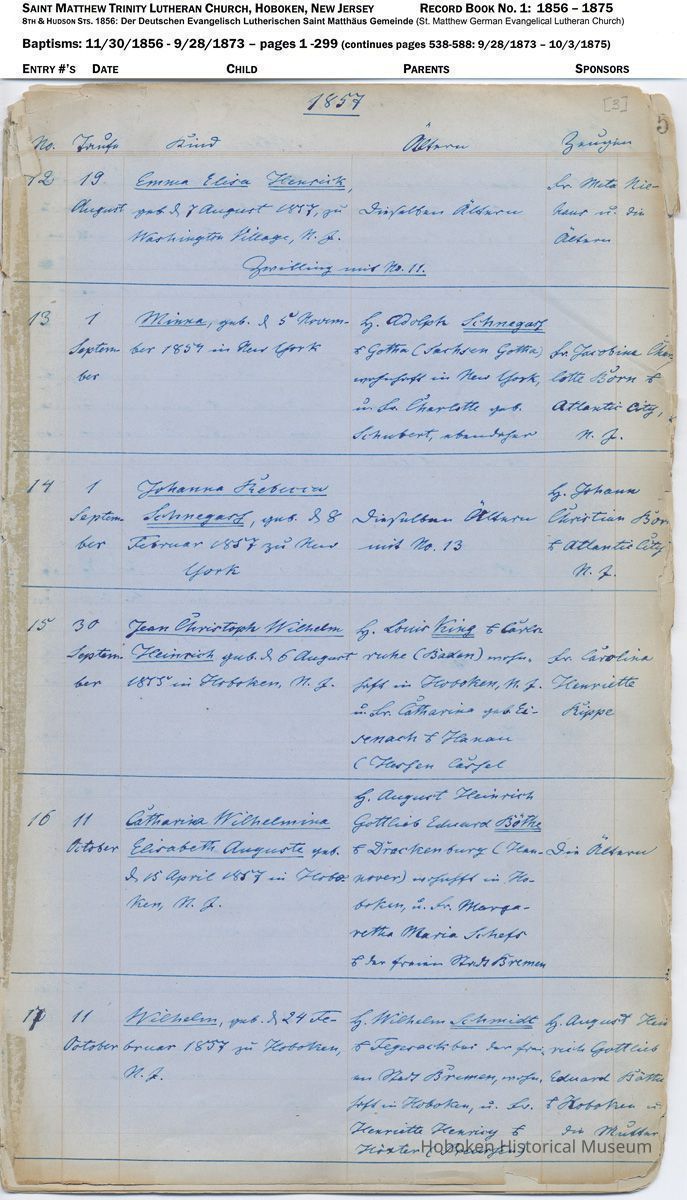 SAINT MATTHEW TRINITY LUTHERAN CHURCH, HOBOKEN, NEW JERSEY RECORD BOOK NO. 1: 1856 – 1875
8TH & HUDSON STS. 1856: Der Deutschen Evangelisch Lutherischen Saint Matthäus Gemeinde (St. Matthew German Evangelical Lutheran Church)
Baptisms: 11/30/1856 - 9/28/1873 – pages 1 -299 (continues pages 538-588: 9/28/1873 – 10/3/1875)
ENTRY #'S DATE CHILD PARENTS SPONSORS
1857 [3] 5
No. Taufe Kind Ältern Zeugen
12 19 Emma Elisa Henrich, Fr. Meta Nie-
August geb. d. 7 August 1857, zu Dieselben Ältern haus u. die
Washington Village, N. J. Ältern
Zwilling mit No. 11.
13 1 Minna, geb. d. 5 Novem- H. Adolph Schnegass
Septem- ber 1854 in New York Gotha (Sachsen Gotha) Fr. Jacobina Char-
ber wohnhaft in New York, lotte Born
u. Fr. Charlotte geb. Atlantic City,
Schubert, ebendaher N. J.
14 1 Johanna Rebecca H. Johann
Septem- Schnegass, geb. d. 8 Dieselben Ältern Christian Born
ber Februar 1857 zu New mit No. 13 Atlantic City
York N. J.
15 30 Jean Christoph Wilhelm H. Louis King Carls-
Septem- Heinrich geb. d. 6 August ruhe (Baden) wohn- Fr. Carolina
ber 1855 in Hoboken, N. J. haft in Hoboken, N. J. Henriette
u. Fr. Catharina geb. Ei- Rippe
senach Hanau
(Hessen Cassel
H. August Heinrich
16 11 Catharina Wilhelmina Gottlieb Eduard Böthe
October Elisabeth Auguste geb. Drackenburg (Han- Die Ältern
d. 15 April 1857 in Hobo- nover) wohnhaft in Ho-
ken, N. J. boken, u. Fr. Marga-
retha Maria Schefs
der freien Stadt Bremen
17 11 Wilhelm, geb. d. 24 Fe- H. Wilhelm Schmidt H. August Hein
October bruar 1857 zu Hoboken, der frei- rich Gottlieb
N. J. en Stadt Bremen, wohn- Eduard Böthe
haft in Hoboken, u. Fr. Hoboken u.
Henriette Henning die Mutter
Höxter
Hoboken Historical Museum